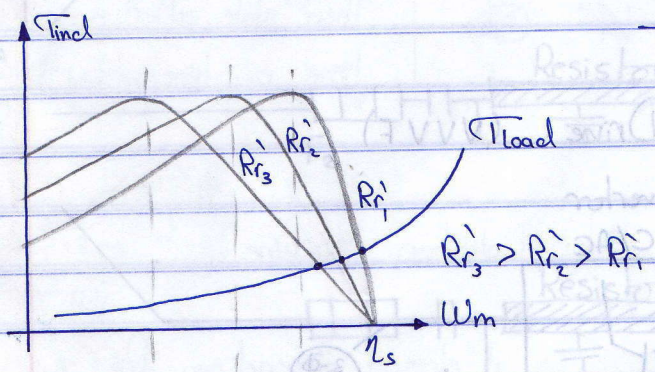 Tind
Rr'3
Rr'2
Rr'1
TLoad
Rr'3 > Rr'2 > Rr'1
Wm
ηs